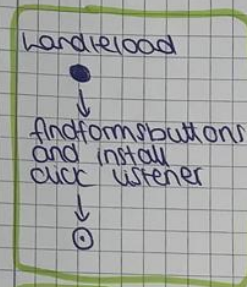 handleload
findformsbuttons
and install
click listener